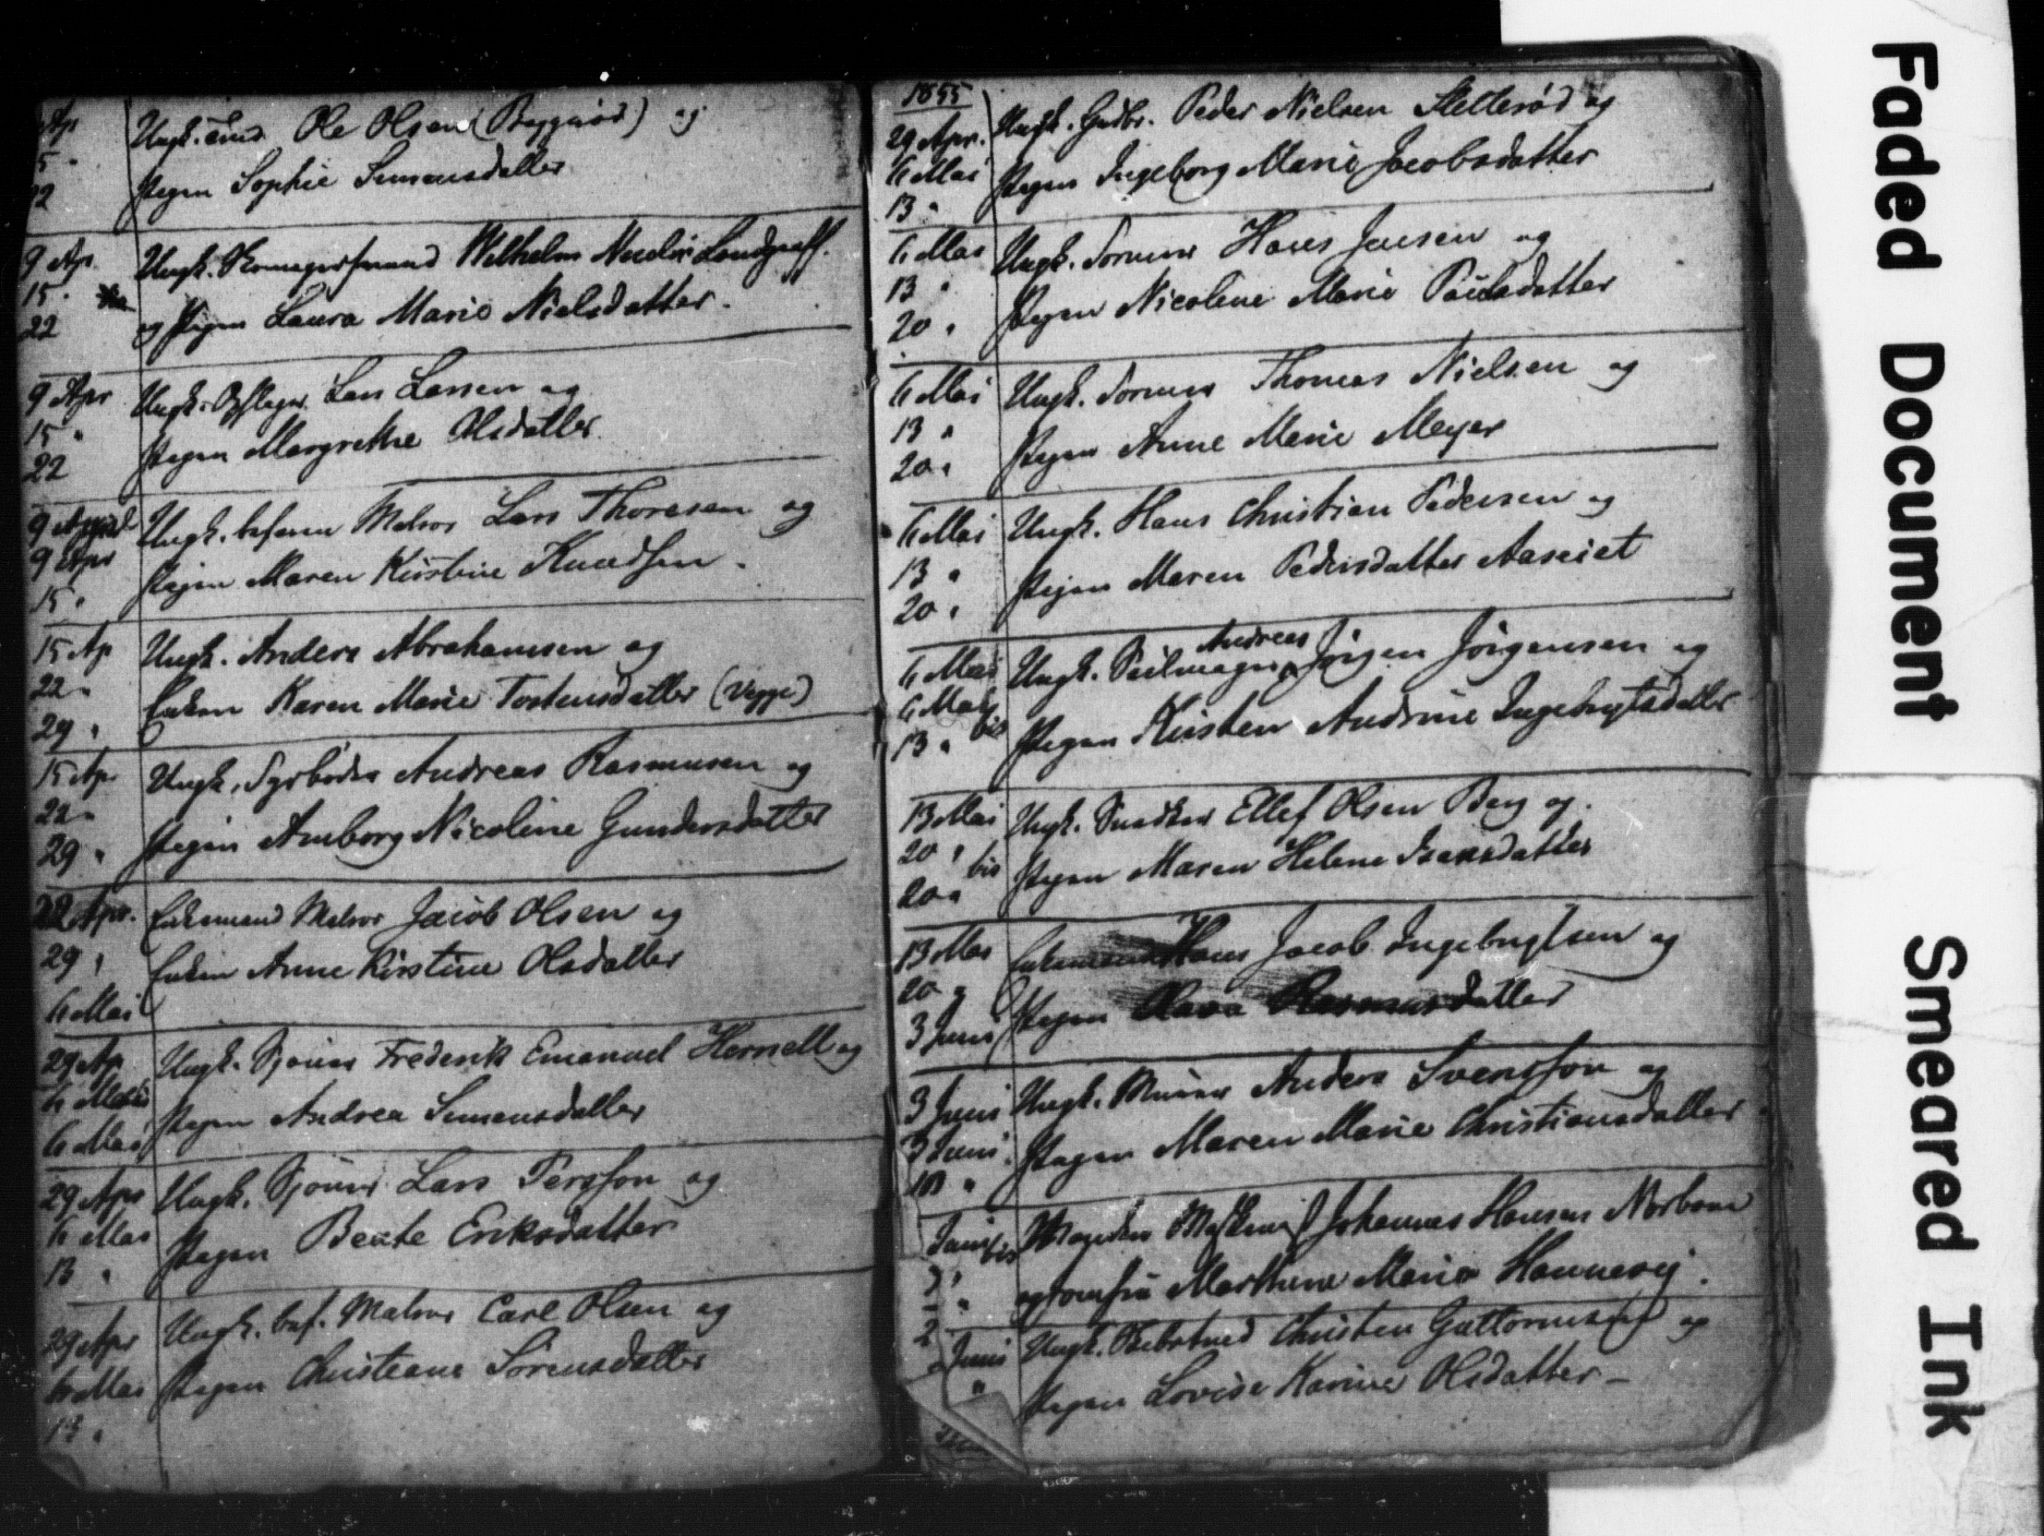 Ap Ungk. Ole Olsen (Byggerød) og
5 "
22 Pigen Sophie Simensdatter
9 Ap Ungk. Skomagersvend Wilhelm Landgraff.
15 "
22 og Pigen Laura Marie Nielsdatter.
9 Apr Ungk. Lars Larsen og
15 "
22 Pigen Margrethe Olsdatter
9 April Ungk. Matros Lars Thoresen og
9 Apr Pigen Maren Kirstine Knudsen.
15 "
15 Ap Ungk. Anders Abrahamsen og
22 "
29 " Enken Karen Marie Tostensdatter (Vegge)
15 Apr Ungk. Fyrböder Andreas Rasmusen og
22 "
29 " Pigen Amborg Nicoline Gundersdatter
22 Apr. Enkemand Matros Jacob Olsen og
29 " Enken Anne Kirstine Olsdatter
6 Mai
29 Ap Ungk. Frederik Emanuel Hernell og
6 Mai
6 Mai Pigen Andrea Simensdatter
29 Apr Ungk. Lars Persson og
6 Mai
13 " Pigen Beate Eriksdatter
29 Apr Ungk. bef. Matros Carl Olsen og
6 Mai Pigen Christiane Sørensdatter
13 "
1855
29 Apr. Ungk. Gudbr. Peder Nielsen Sletterød og
6 Mai Pigen Ingeborg Marie Jacobsdatter
13 "
6 Mai Ungk. Hans Jensen og
13 "
20 " Pigen Nicoline Marie Paulsdatter
6 Mai Ungk. Thomas Nielsen og
13 "
20 " Pigen Anne Marie Meyer
6 Mai Ungk. Hans Christian Pedersen og
13 "
20 " Pigen Maren Pedersdatter Aaseiet
Andreas
6 Mai Ungk. Seilmager Jörgen Jörgensen og
6 Mai bis
13 " Pigen Kirsten Andrine Ingebrigtsdatter
13 Mai Ungk. Snedker Ellef Olsen Berg og
20 " bis
20 " Pigen Maren Helene Isaksdatter
13 Mai Enkemand Hans Jacob Ingebrigtsen og
20 "
3 Juni Pigen Olava Rasmusdatter
3 Juni Ungk. Murer Anders Svensson og
3 Juni Pigen Maren Marie Christiansdatter
10 "
Juni bis Johannes Hansen Norbom
" og Jomfru Marthine Marie Hannevig.
Juni Ungk. Christen Guttormsen og
" Pigen Lovise Karine Olsdatter –
Faded Document
Smeared Ink